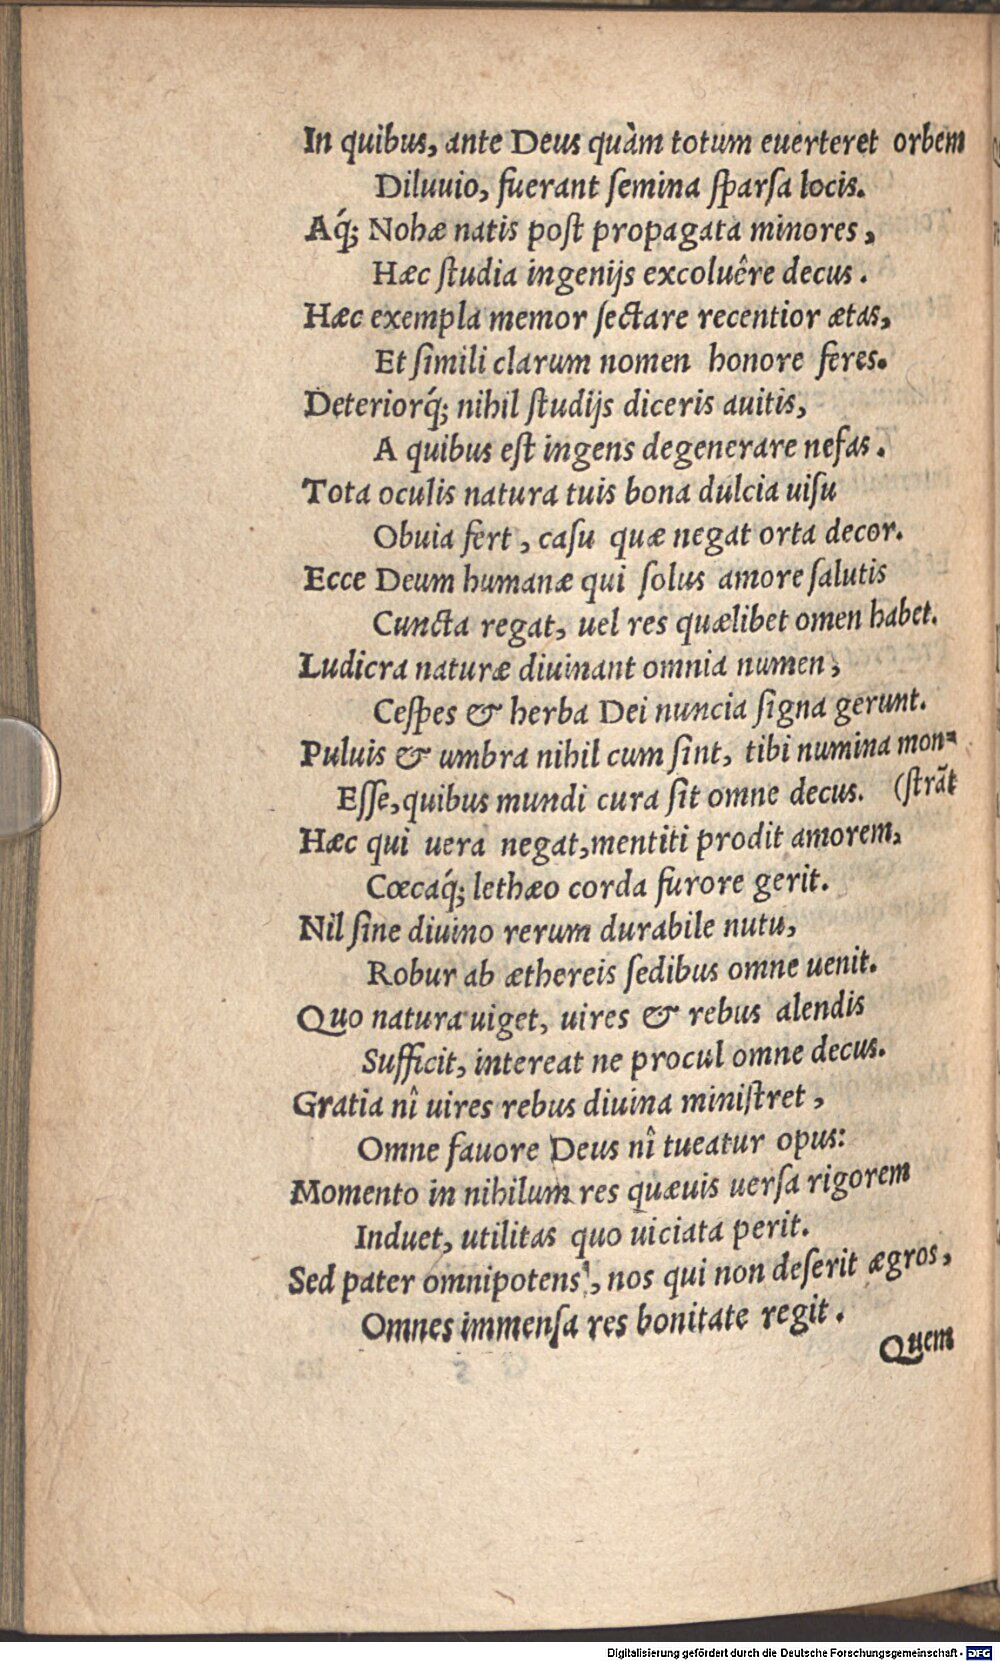 In quibus, ante Deus quàm totum euerteret orbem
Diluuio, fuerant ſemina ſparſa locis.
Aq́; Nohæ natis poſt propagata minores,
Hæc ſtudia ingenijs excoluêre decus.
Hæc exempla memor ſectare recentior ætas,
Et ſimili clarum nomen honore feres.
Deteriorq́; nihil ſtudijs diceris auitis,
A quibus eſt ingens degenerare nefas.
Tota oculis natura tuis bona dulcia uiſu
Obuia fert, caſu quæ negat orta decor.
Ecce Deum humanæ qui ſolus amore ſalutis
Cuncta regat, uel res quælibet omen habet.
Ludicra naturæ diuinant omnia numen,
Ceſpes & herba Dei nuncia ſigna gerunt.
Puluis & umbra nihil cum ſint, tibi numina mon=
Eſſe, quibus mundi cura ſit omne decus. (ſtrāt
Hæc qui uera negat, mentiti prodit amorem,
Cœcaq́; lethæo corda furore gerit.
Nil ſine diuino rerum durabile nutu,
Robur ab æthereis ſedibus omne uenit.
Quo natura uiget, uires & rebus alendis
Sufficit, intereat ne procul omne decus.
Gratia nî uires rebus diuina miniſtret,
Omne fauore Deus nî tueatur opus:
Momento in nihilum res quæuis uerſa rigorem
Induet, utilitas quo uiciata perit.
Sed pater omnipotens, nos qui non deſerit ægros,
Omnes immenſa res bonitate regit.
Quem
Digitalisierung gefördert durch die Deutsche Forschungsgemeinschaft - DFG